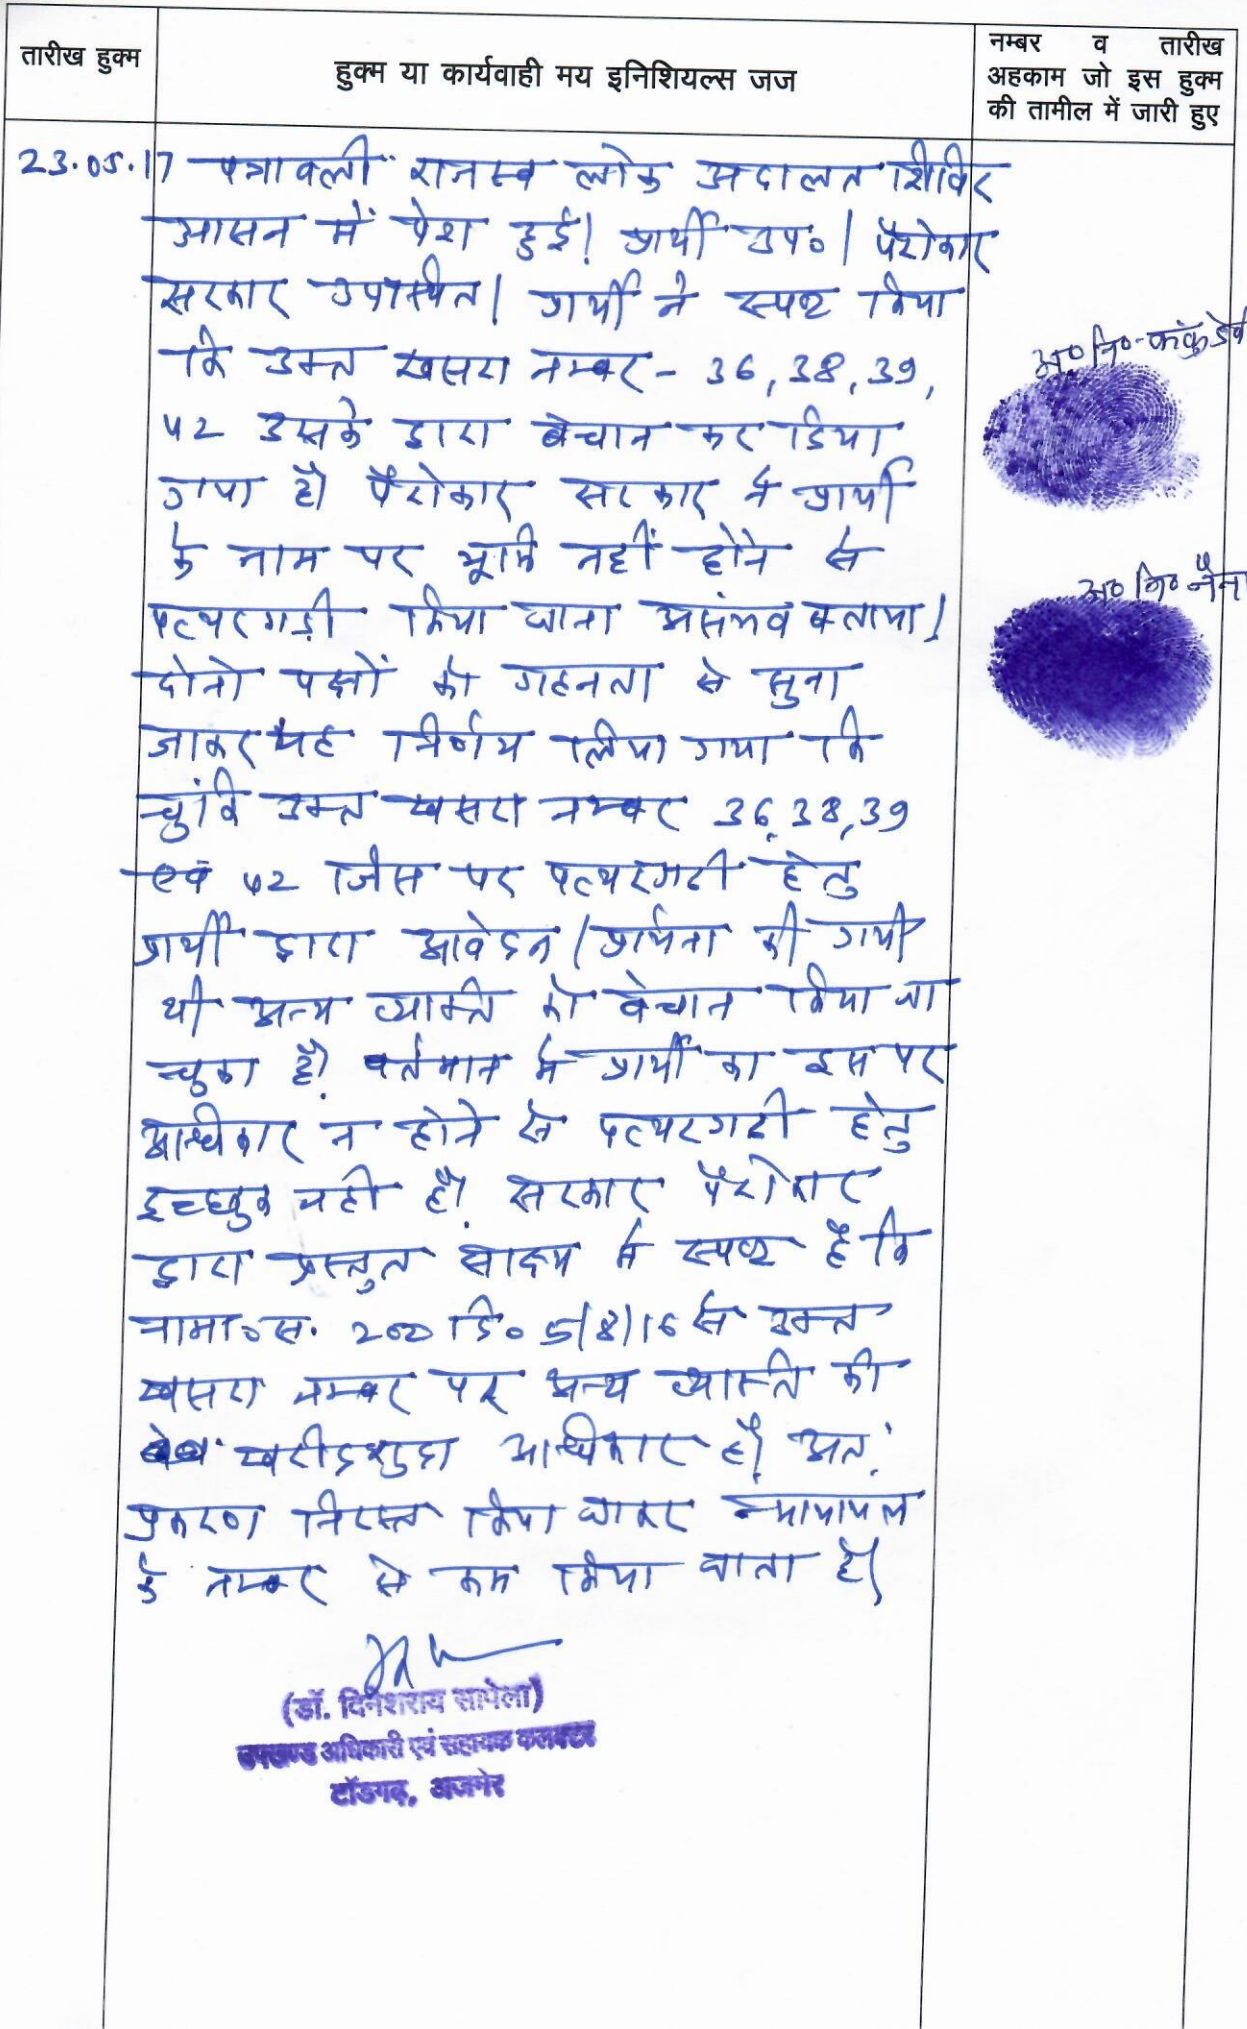 तारीख हुक्म
हुक्म या कार्यवाही मय इनिशियल्स जज
नम्बर व तारीख
अहकाम जो इस हुक्म
की तामील में जारी हुए
23.05.17 पत्रावली राजस्व लोक अदालत शिविर
आसन में पेश हुई। प्रार्थी उप०। पैरोकार
सरकार उपस्थित। प्रार्थी ने स्पष्ट किया
कि उक्त खसरा नम्बर - 36, 38, 39,
42 उसके द्वारा बेचान कर दिया
गया है। पैरोकार सरकार ने प्रार्थी
के नाम पर भूमि नहीं होने से
पत्थरगढ़ी किया जाना असंभव बताया।
दोनो पक्षों को गहनता से सुना
जाकर यह निर्णय लिया गया कि
चुंकि उक्त खसरा नम्बर 36, 38, 39
एवं 42 जिस पर पत्थरगढी हेतु
प्रार्थी द्वारा आवेदन / प्रार्थना की गयी
थी अन्य व्यक्ति को बेचान किया जा
चुका है। वर्तमान मे प्रार्थी का इस पर
अधिकार न होने से पत्थरगढी हेतु
इच्छुक नही है। सरकार पैरोकार
द्वारा प्रस्तुत साक्ष्य मे स्पष्ट है कि
नामा०स. 200 दि० 5/8/16 से उक्त
खसरा नम्बर पर अन्य व्यक्ति की
खरीदशुदा अधिकार है। अत:
प्रकरण निरस्त किया जाकर न्यायालय
के नम्बर से कम किया जाता है।
(डॉ. दिनेशराय सापेला)
उपखण्ड अधिकारी एवं सहायक कलक्टर
टॉडगढ़, अजमेर
अ० नि०- कंकु देवी
अ० नि० नैना